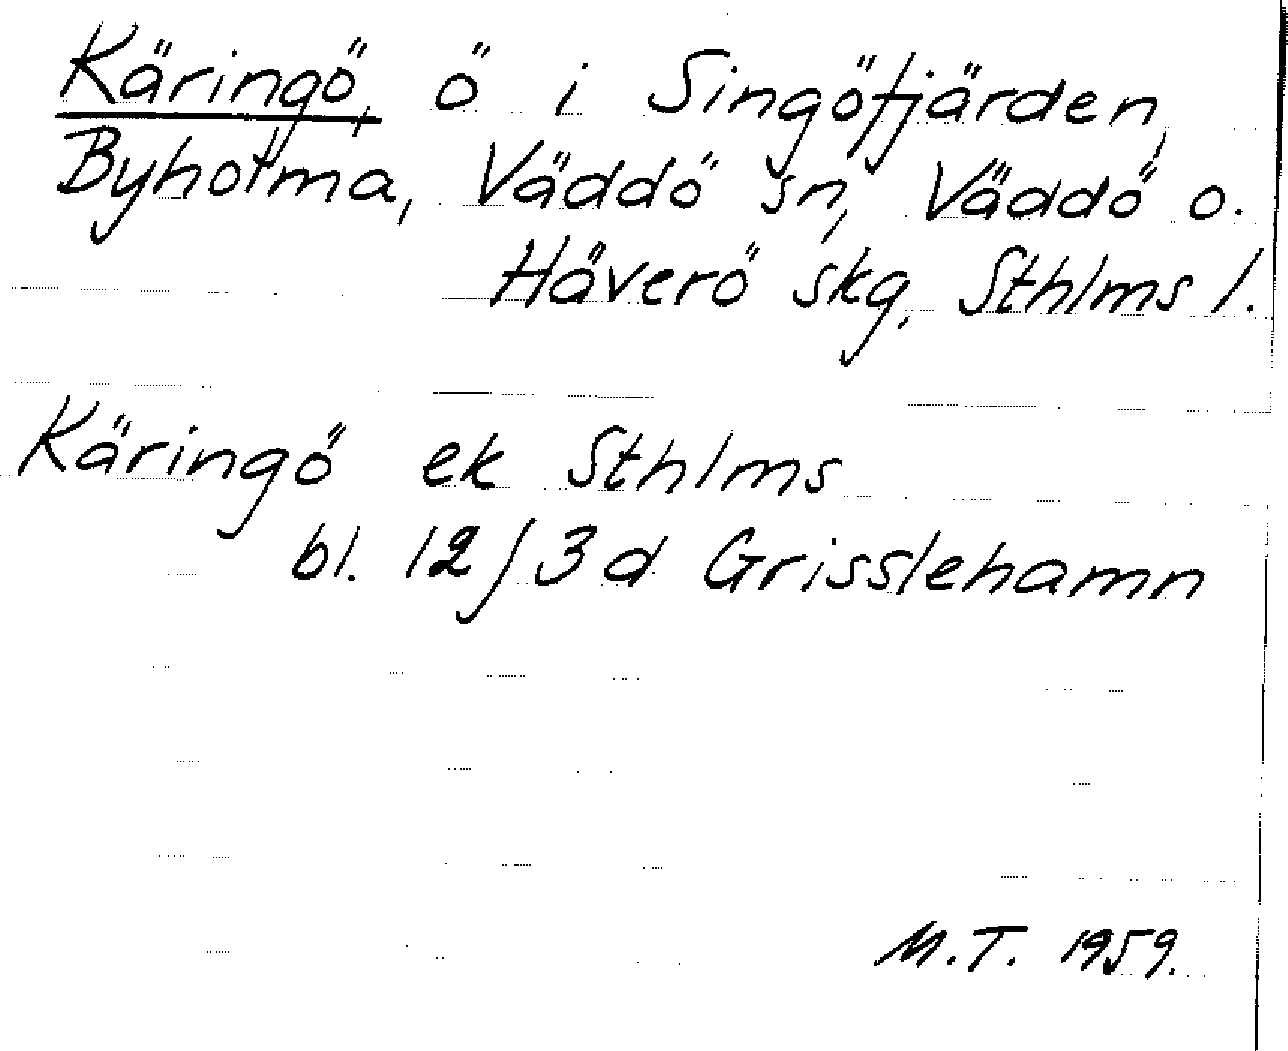 Käringö, ö i Singöfjärden,
Byholma, Väddö sn, Väddö o.
Häverö skg, Sthlms l.
Käringö ek Sthlms
bl. 12/3d Grisslehamn
M.T. 1959.